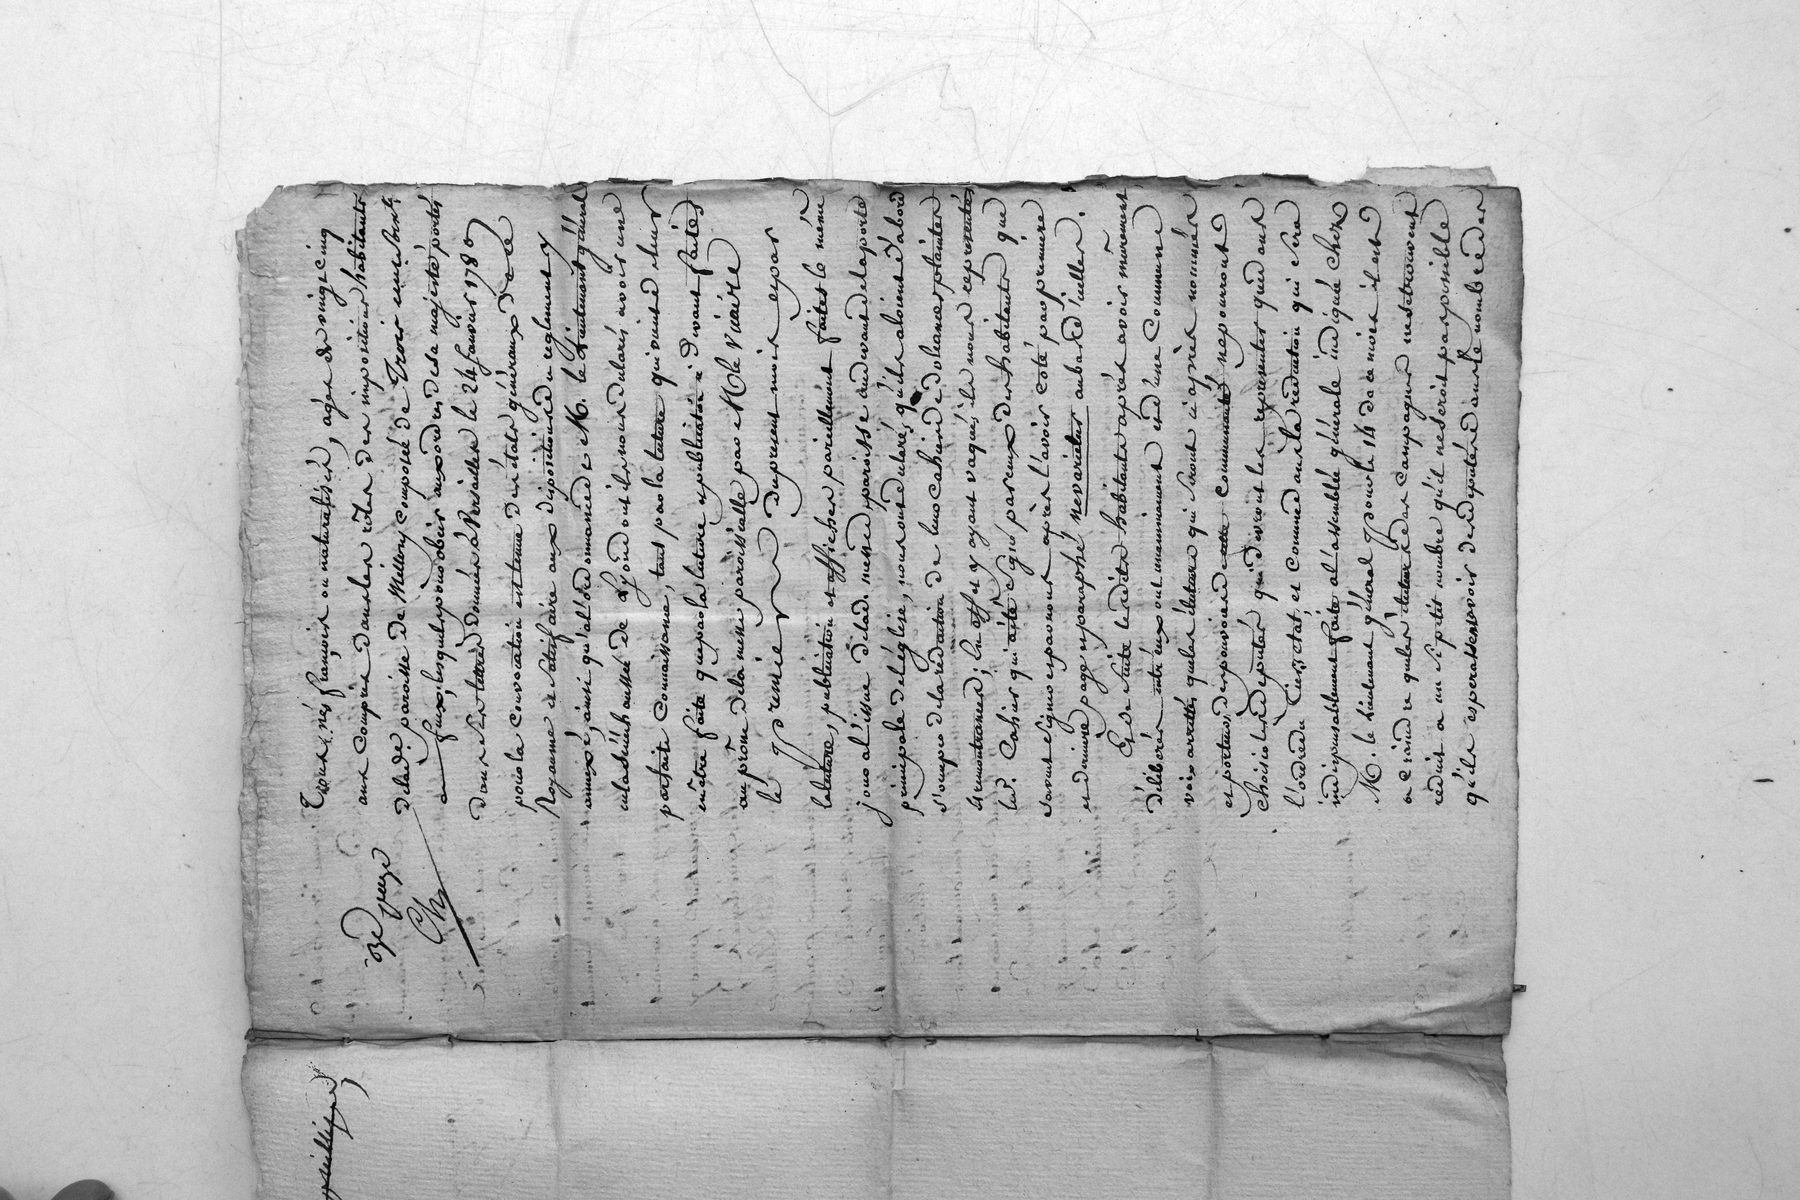 Tous nés françois ou naturalisés, agés de vingt cinq
ans compris dans les rôles des impositions, habitants
de lad. paroisse de Messimy composée de Trois cents vingt
feux, lesquels pour obéir aux ordres de sa majesté portés
dans ses lettres données à Versailles le 24 janvier 1789
pour la convocation et tenue des états généraux de ce
Royaume et satisfaire aux dispositions du règlement y
annexé, ainsi qu'à l'ordonnance de M. le Lieutenant général
en la sénéchaussée de Lyon dont ils nous ont déclarés avoir une
parfaite connoissance, tant par la lecture qui vient de leur
en être faite que par la lecture et publication ci devant faites
au prône de la messe paroissialle par M. le Vicaire
le premier du present mois et par
la lecture, publication et affiches pareillement faites le même
jour à l'issue de lad. messe de paroisse au devant de la porte
principale de l'église, nous ont déclaré qu'ils aloient d'abord
s'ocuper de la rédaction de leur cahier de doleances, plaintes
et remontrances; en effet y ayant vaqué, ils nous ont représenté
led. Cahier qui a été signé par ceux des habitants que
savent signer et par nous après l'avoir coté par premiere
et derniere page et paraphé nevarietur au bas d'icelles.
Et de suite lesdits habitants après avoir mûrement
délibérer entre eux ont unanimement et d'une commune
voix arretté, que les électeurs qui seront ci après nommés
et porteurs des pouvoirs de cette communauté, ne pourront
choisir des députés qui devront les représenter que dans
l'ordre du Tiers état, et comme dans la rédaction qui sera
indispensablement faite a l'assemblée générale indiquée chez
M. le lieutenant général pour le 14 de ce mois il est
a craindre que les électeurs des campagnes ne se trouvent
réduits a un si petit nombre qu'il ne seroit pas possible
qu'ils esperassent voir des députés dans le nombre des
2e page
Ch